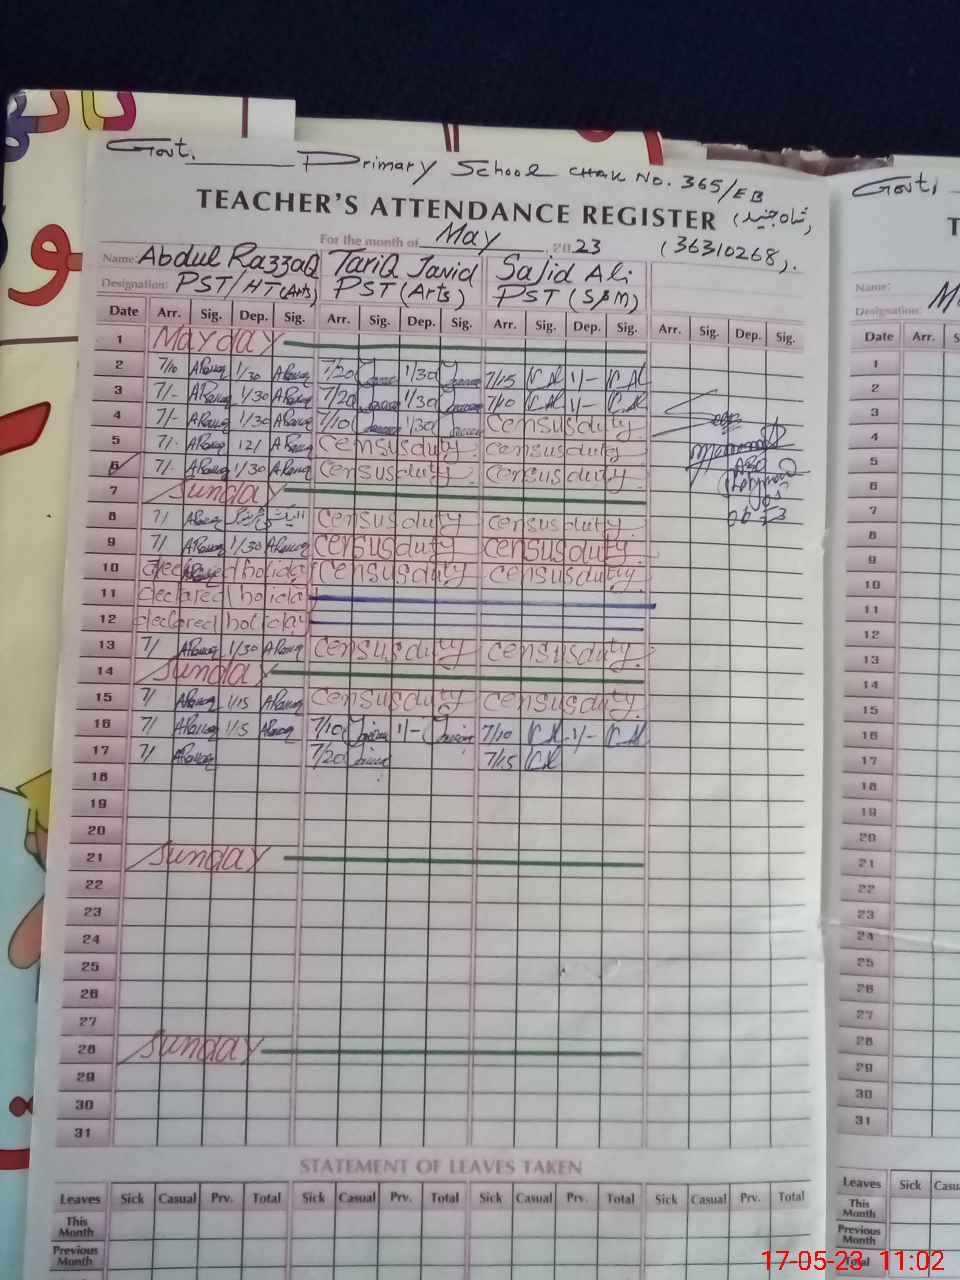 Govt. Primary School CHAK No. 365/EB
TEACHER'S ATTENDANCE REGISTER (شاہ جنید)
For the month of May, 2023 (36310268).
Name: Abdul RazzaQ TariQ Javid Sajid Ali
Designation: PST/HT(Arts) PST (Arts) PST (S&M)
Date Arr. Sig. Dep. Sig. Arr. Sig. Dep. Sig. Arr. Sig. Dep. Sig. Arr. Sig. Dep. Sig.
1 May day
2 7/10 1/30 7/20 1/30 7/15 1/-
3 7/- 1/30 7/20 1/30 7/10 1/-
4 7/- 1/30 7/10 1/30 census duty
5 7/- 12/ census duty census duty
6 7/- 1/30 census duty census duty
7 Sunday
8 7/ census duty census duty
9 7/ 1/30 census duty census duty
10 declared holiday census duty census duty
11 declared holiday
12 declared holiday
13 7/ 1/30 census duty census duty
14 Sunday
15 7/ 1/15 census duty census duty
16 7/ 1/15 7/10 1/- 7/10 1/-
17 7/ 7/20 7/15
18
19
20
21 Sunday
22
23
24
25
26
27
28 Sunday
29
30
31
STATEMENT OF LEAVES TAKEN
Leaves Sick Casual Prv. Total Sick Casual Prv. Total Sick Casual Prv. Total Sick Casual Prv. Total
This Month
Previous Month
Govt.
T
Name: M
Designation:
Date Arr. S
1
2
3
4
5
6
7
8
9
10
11
12
13
14
15
16
17
18
19
20
21
22
23
24
25
26
27
28
29
30
31
Leaves Sick Casu
This Month
Previous Month
Total
17-05-23 11:02